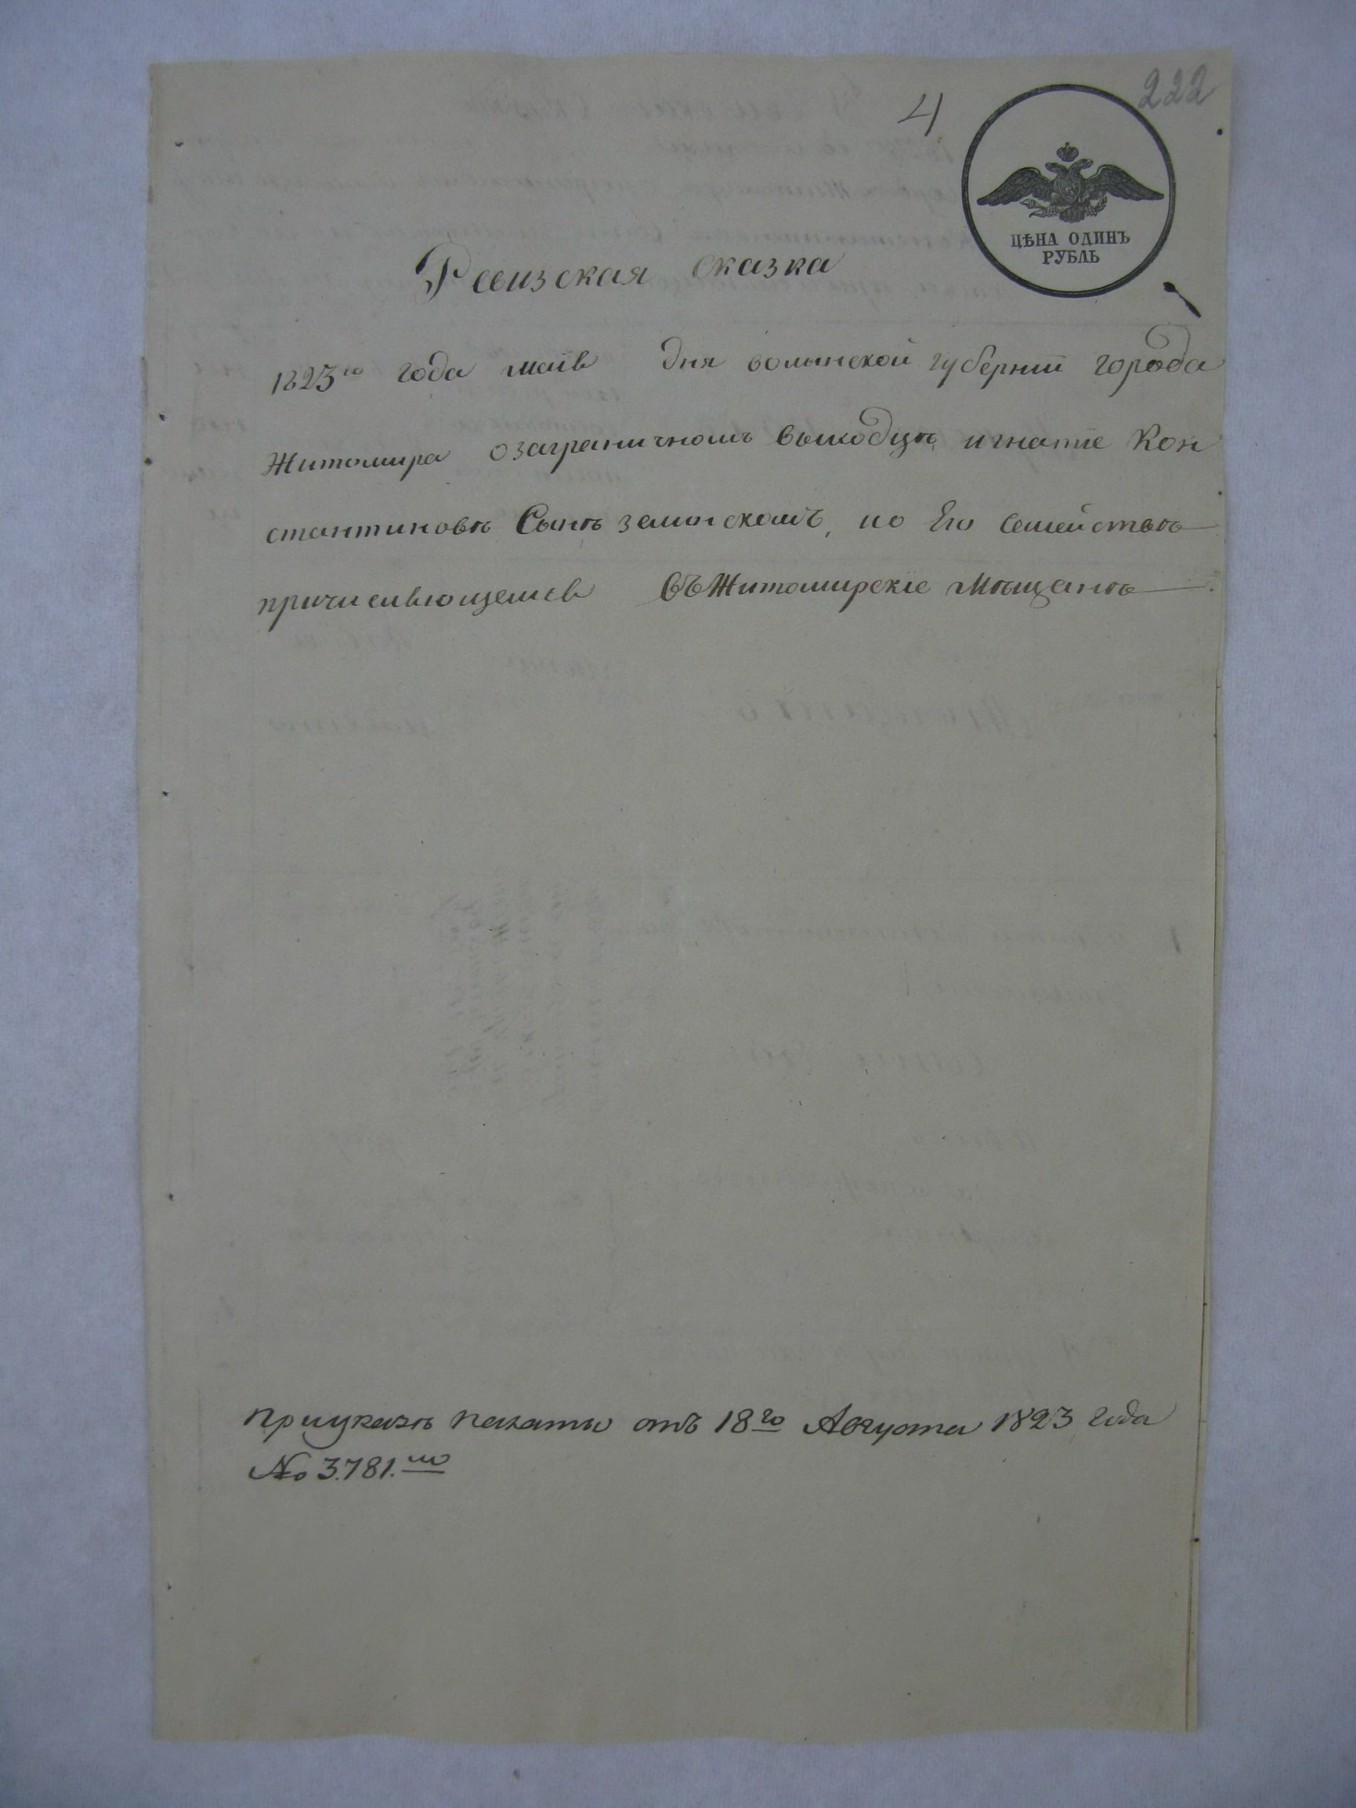 4
222
ЦѢНА ОДИНЪ
РУБЛЬ
Ревизская сказка
1823го года маія дня волынской губерніи города
Житомира озаграничномъ выходцѣ игнатіе Кон
стантиновѣ Сынѣ земинскомъ, ио Его Семействѣ
причисляющемся въ Житомирскіе мѣщанѣ
При указѣ палаты отъ 18го Августа 1823 года
№ 3.781.мъ